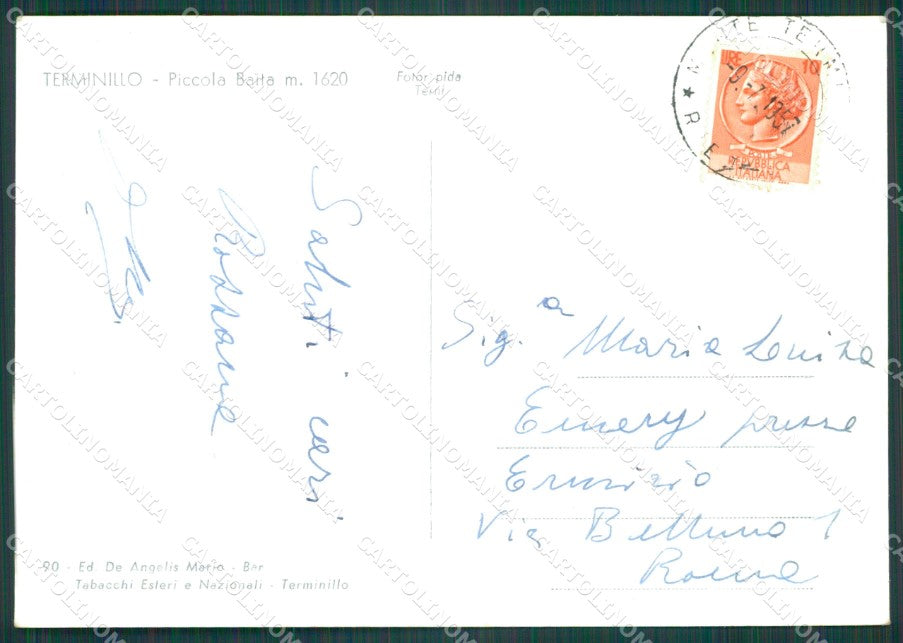 TERMINILLO - Piccola Baita m. 1620
Fotorapida
Terni
LIRE 10
REPVBBLICA
ITALIANA
MONTE TERMI
★ RIETI
-9.-7.1957
Saluti cari
Rossana
Sig.a Maria Louisa
Emery presso
Via Belluno 1
Roma
90 - Ed. De Angelis Mario - Bar
Tabacchi Esteri e Nazionali - Terminillo
CARTOLINOMANIA